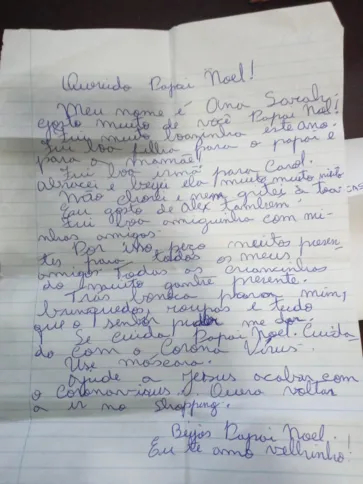 Querido Papai Noel!
Meu nome é Ana Sarah,
gosto muito de você Papai Noel!
Fui muito boazinha este ano.
Fui boa filha para o papai e
para a mamãe!
Fui boa irmã para Carol.
abracei e beijei ela muito muito muito
Não chorei e nem gritei
Eu gosto de Alex também!
Fui boa amiguinha com mi-
nhas amigas.
Por isso, peço muitos presen-
tes para todos os meus
amigos. Todas as criancinhas
do mundo ganhe presente.
Trás boneca para mim,
brinquedos, roupas e tudo
que o senhor puder me dar
Se cuida Papai Noel. Cuida
do com o Corona Vírus.
Use máscara.
Ajude a Jesus acabar com
o coronavirus. Quero voltar
a ir no shopping.
Beijos Papai Noel.
Eu te amo velhinho!